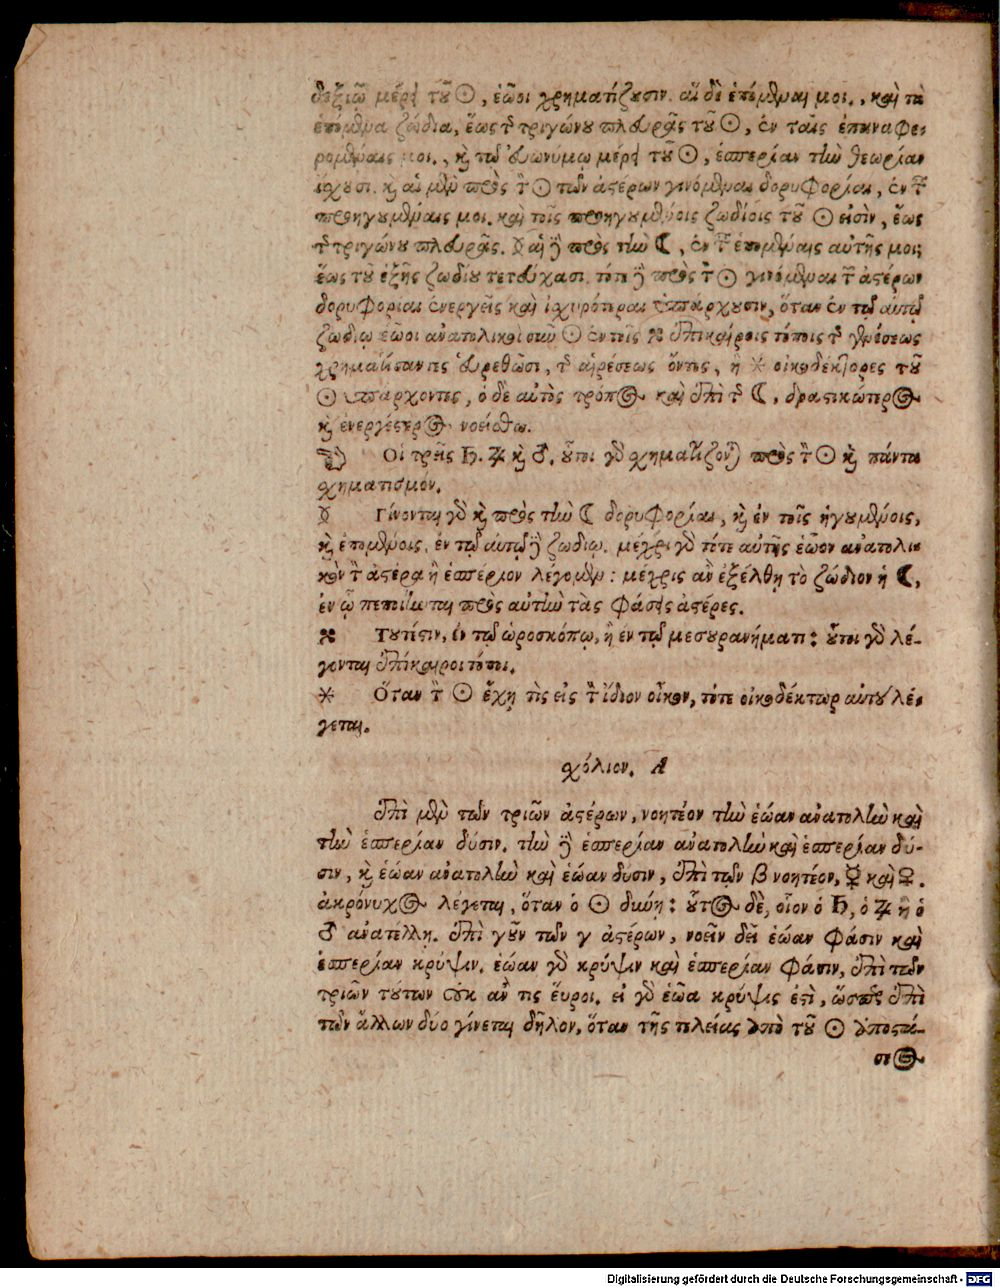 δεξιῷ μέρει τοῦ ☉, ἑῶοι χρηματίζουσιν. αἱ δὲ ἑπόμεναι μοι., καὶ τὰ
ἑπόμενα ζώδια, ἕως τῆς τριγώνου πλευρᾶς τοῦ ☉, ἐν ταῖς ἐπαναφε-
ρομέναις μοι., καὶ τῷ εὐωνύμῳ μέρει τοῦ ☉, ἑσπερίαν τὴν θεωρίαν
ἴσχουσι. καὶ αἱ μὲν πρὸς τὸν ☉ τῶν ἀστέρων γινόμεναι δορυφορίαι, ἐν ταῖς
προηγουμέναις μοι. καὶ τοῖς προηγουμένοις ζωδίοις τοῦ ☉ εἰσὶν, ἕως
τῆς τριγώνου πλευρᾶς. ☿ αἱ δὲ πρὸς τὴν ☾, ἐν ταῖς ἑπομέναις αὐτῆς μοι;
ἕως τοῦ ἑξῆς ζωδίου τετεύχασι. τότε δὲ πρὸς τὸν ☉ γινόμεναι τῶν ἀστέρων
δορυφορίαι ἐνεργεῖς καὶ ἰσχυρότεραι ὑπάρχουσιν, ὅταν ἐν τῷ αὐτῷ
ζωδίῳ ἑῶοι ἀνατολικοὶ σὺν ☉ ἐν τοῖς ⌘ ἐπικαίροις τόποις τῆς γενέσεως
χρηματίσαντες εὑρεθῶσι, τῆς αἱρέσεως ὄντες, ἢ ⚹ οἰκοδέκτορες τοῦ
☉ ὑπάρχοντες, ὁ δὲ αὐτὸς τρόπος καὶ ἐπὶ τῆς ☾, δραστικώτερος
καὶ ἐνεργέστερος νοείσθω.
☞ Οἱ τρεῖς ♄. ♃ καὶ ♂. οὗτοι γὰρ σχηματίζονται πρὸς τὸν ☉ καὶ πάντα
σχηματισμόν.
☿ Γίνονται γὰρ καὶ πρὸς τὴν ☾ δορυφορίαι, καὶ ἐν τοῖς ἡγουμένοις,
καὶ ἑπομένοις. ἐν τῷ αὐτῷ δὲ ζωδίῳ. μέχρι γὰρ τότε αὐτῆς ἑῶον ἀνατολι-
κὸν τὸν ἀστέρα ἢ ἑσπέριον λέγομεν: μέχρις ἂν ἐξέλθῃ τὸ ζώδιον ἡ ☾,
ἐν ᾧ πεποίηνται πρὸς αὐτὴν τὰς φάσεις ἀστέρες.
⌘ Τουτέστιν, ἐν τῷ ὡροσκόπῳ, ἢ ἐν τῷ μεσουρανήματι: οὗτοι γὰρ λέ-
γονται ἐπίκαιροι τόποι.
⚹ Ὅταν τὸν ☉ ἔχῃ τὶς εἰς τὸν ἴδιον οἶκον, τότε οἰκοδέκτωρ αὐτοῦ λέ-
γεται.
σχόλιον. Α
Ἐπὶ μὲν τῶν τριῶν ἀστέρων, νοητέον τὴν ἑώαν ἀνατολὴν καὶ
τὴν ἑσπερίαν δύσιν. τὴν δὲ ἑσπερίαν ἀνατολὴν καὶ ἑσπερίαν δύ-
σιν, καὶ ἑώαν ἀνατολὴν καὶ ἑώαν δύσιν, ἐπὶ τῶν β νοητέον, ☿ καὶ ♀.
ἀκρόνυχος λέγεται, ὅταν ὁ ☉ δύνῃ: οὗτος δὲ, οἷον ὁ ♄, ὁ ♃ ἢ ὁ
♂ ἀνατέλλῃ. ἐπὶ γοῦν τῶν γ ἀστέρων, νοεῖν δεῖ ἑώαν φάσιν καὶ
ἑσπερίαν κρύψιν. ἑώαν γὰρ κρύψιν καὶ ἑσπερίαν φάσιν, ἐπὶ τῶν
τριῶν τούτων οὐκ ἄν τις εὕροι. εἰ γὰρ ἑῴα κρύψις ἐστὶ, ὥσπερ ἐπὶ
τῶν ἄλλων δύο γίνεται δῆλον, ὅταν τῆς πλείας ὑπὸ τοῦ ☉ ὑποστά-
σεος
Digitalisierung gefördert durch die Deutsche Forschungsgemeinschaft - DFG